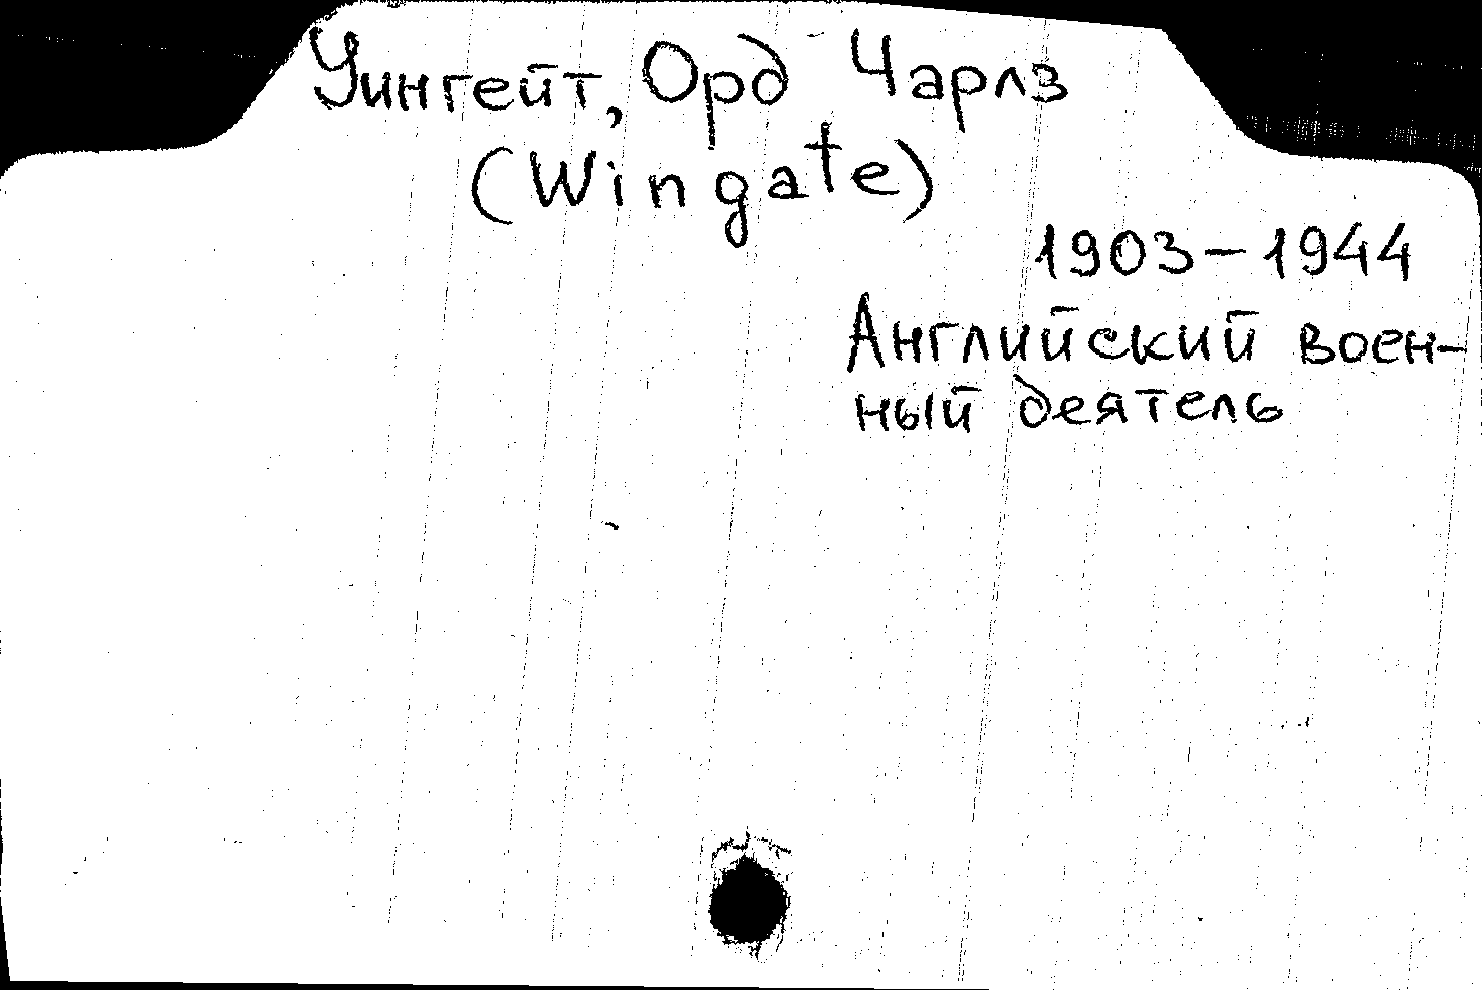 Уингейт, Орд Чарлз
(Wingate)
1903-1944
Английский воен-
ный деятель